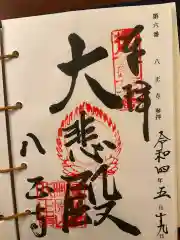 第六番 八王寺
奉拝
令和四年五月十九日
大悲殿
八王寺